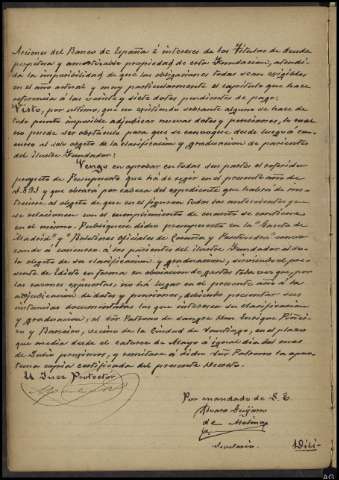 Acciones del Banco de España é intereses de los Títulos de deuda
perpétua y amortizable propiedad de esta Fundacion, atendi-
da la imposibilidad de que las obligaciones todas sean exigibles
en el año actual y muy particularmente el capítulo que hace
referencia á las veinte y siete dotes pendientes de pago;
Visto, por último, que no existiendo sobrante alguno se hace de
todo punto imposible adjudicar nuevas dotes y pensiones, lo cual
no puede ser obstáculo para que se convoque desde luego á con-
curso al solo objeto de la clasificacion y graduacion de parientes
del ilustre Fundador;
Vengo en aprobar en todas sus partes el referido
proyecto de Presupuesto que ha de regir en el presente año de
1.891 y que obrará por cabeza del expediente que habrá de ins-
truirse al objeto de que en él figuren todos los antecedentes que
se relacionen con el cumplimiento de cuanto se contiene
en el mismo. Publíquese dicho presupuesto en la "Gaceta de
Madrid" y "Boletines oficiales de Coruña y Pontevedra" convo-
cando á concurso á los parientes del ilustre Fundador al so-
lo objeto de su clasificacion y graduacion, sirviendo el pre-
sente de Edicto en forma en evitacion de gastos toda vez que, por
las razones expuestas, no há lugar en el presente año á la
adjudicacion de dotes y pensiones, debiendo presentar sus
instancias documentadas los que interesen su clasificacion
y graduacion, al Sor. Patrono de sangre Don Enrique
y vecino de la Ciudad de Santiago, en el plazo
que media desde el catorce de Mayo á igual dia del mes
de Julio proximos, y remítase á dicho Sor. Patrono la opor-
tuna copia certificada del presente Decreto.
El Juez Protector
Por mandado de S. E.
Alvaro
de
Secretario.